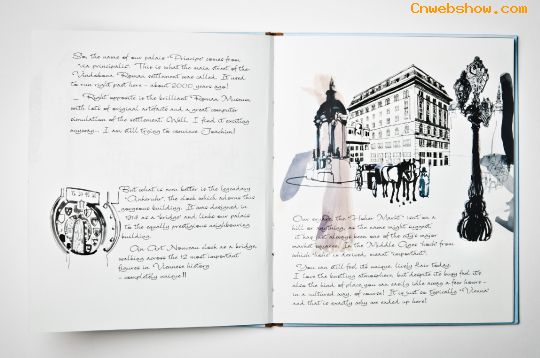 Cnwebshow.com
So, the name of our palais "Principe" comes from
"via principalis". This is what the main street of the
Vindobona Roman settlement was called. It used
to run right past here - about 2000 years ago!
_ Right opposite is the brilliant Roman Museum
with lots of original artefacts and a great computer
simulation of the settlement. Well, I find it exciting
anyway... I am still trying to convince Joachim!
But what is even better is the legendary
"Ankeruhr", the clock which adorns this
gorgeous building. It was designed in
1914 as a bridge and links our palais
to the equally prestigious neighbouring
building.
An Art Nouveau clock as a bridge,
walking across the 12 most important
figures in Viennese history
- completely unique!!
Our square, the "Hoher Markt" isn't on a
hill or anything, as the name might suggest,
it has always been one of the city's major
market squares. In the Middle Ages "hoch" from
which "hoher" is derived, meant "important".
You can still feel its unique, lively flair today.
I love the bustling atmosphere, but despite its busy feel it's
also the kind of place you can easily idle away a few hours -
in a cultured way, of course! It is just so typically "Vienna"
and that is exactly why we ended up here!